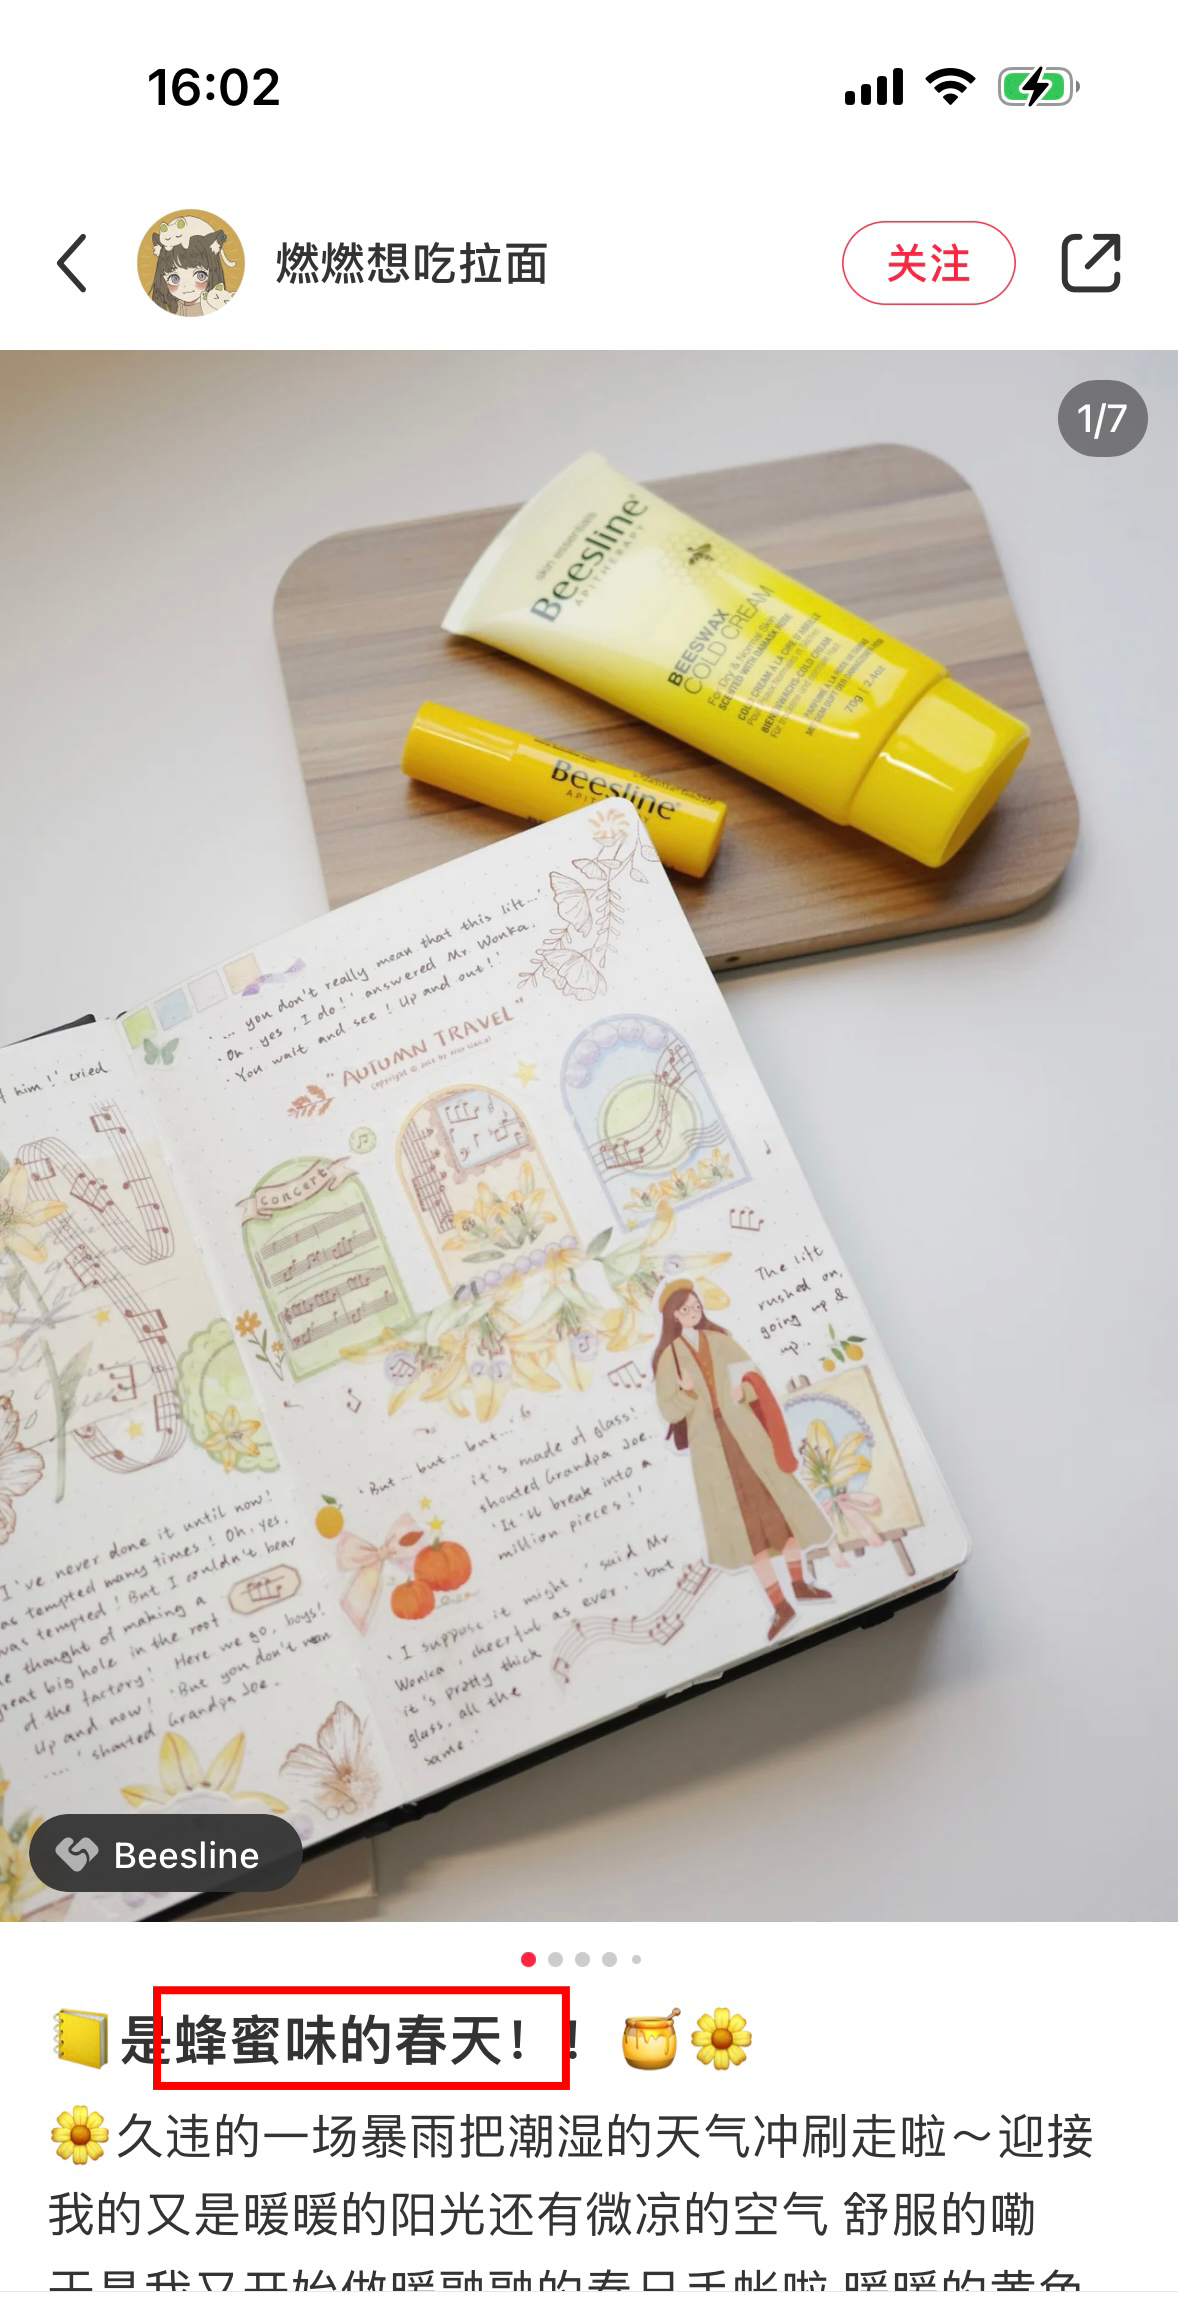 16:02
燃燃想吃拉面
关注
1/7
skin essentials
Beesline
APITHERAPY
BEESWAX
COLD CREAM
For Dry & Normal Skin
SCENTED WITH DAMASK ROSE
COLD CREAM A LA CIRE D'ABEILLE
BIENENWACHS-COLD CREAM
70g | 2.4oz
Beesline
'... you don't really mean that this lift...'
'Oh, yes, I do!' answered Mr. Wonka.
'You wait and see! Up and out!'
"AUTUMN TRAVEL"
him!' cried
concert
The lift
rushed on,
going up &
up.
'But... but... but...
it's made of glass!'
shouted Grandpa Joe.
'It'll break into a
million pieces!'
I've never done it until now!
as tempted many times! Oh, yes,
was tempted! But I couldn't bear
e thought of making a
great big hole in the roof
of the factory! Here we go, boys!
Up and now! 'But you don't mean
....' shouted Grandpa Joe.
'I suppose it might,' said Mr
Wonka, cheerful as ever, 'but
it's pretty thick
glass, all the
same.'
Beesline
是蜂蜜味的春天！！
久违的一场暴雨把潮湿的天气冲刷走啦～迎接
我的又是暖暖的阳光还有微凉的空气 舒服的嘞
于是我又开始做暖融融的春日手帐啦 暖暖的黄色